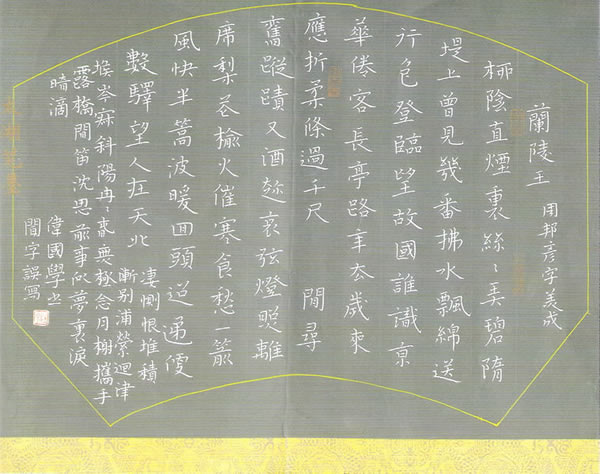 蘭陵王 周邦彥字美成
柳陰直煙裏絲〻弄碧隋
堤上曾見幾番拂水飄綿送
行色登臨望故國誰識京
華倦客長亭路年去歲來
應折柔條過千尺 閒尋
舊蹤蹟又酒趁哀弦燈照離
席梨花榆火催寒食愁一箭
風快半篙波暖回頭迢遞便
數驛望人在天北
淒惻恨堆積
漸別浦縈迴津
堠岑寂斜陽冉〻春無極念月榭攜手
露橋聞笛沈思前事似夢裏淚
暗滴
偉國學書
閒字誤寫